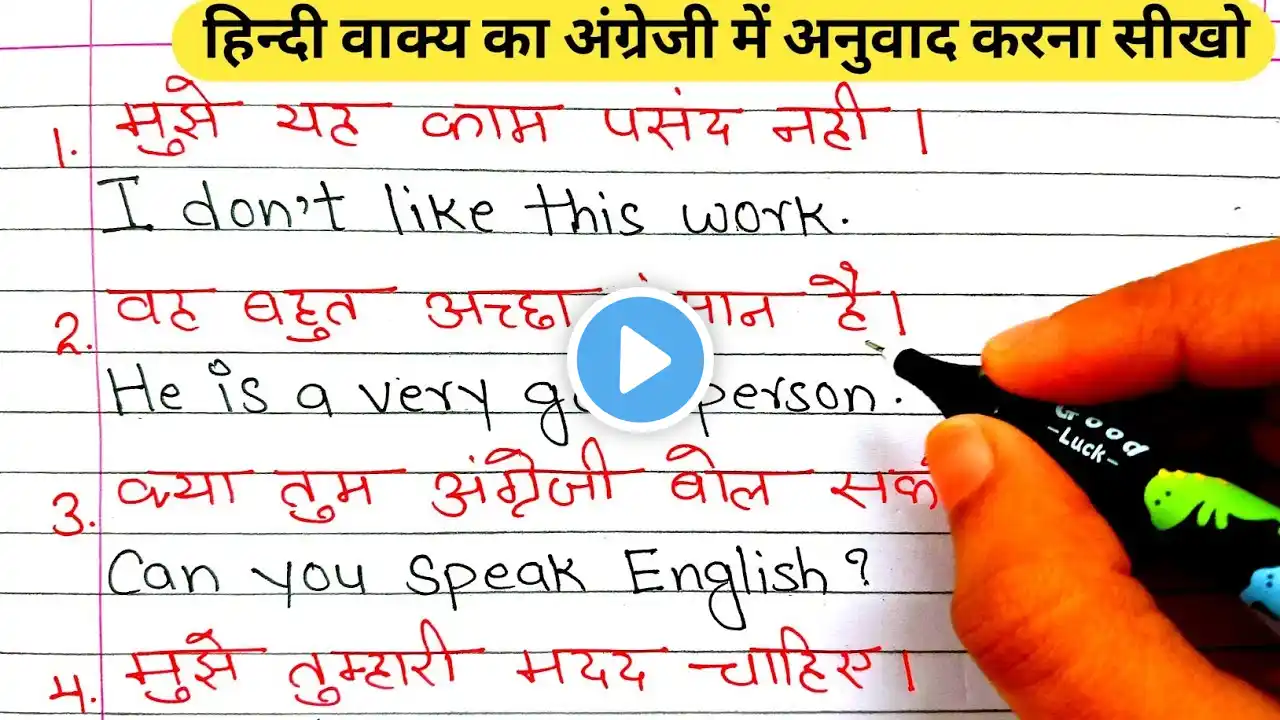 हिन्दी वाक्य का अंग्रेजी में अनुवाद करना सीखो
1. मुझे यह काम पसंद नही।
I don't like this work.
2. वह बहुत अच्छा है।
He is a very person.
3. क्या तुम अंग्रेजी बोल
Can you speak English?
4. मुझे तुम्हारी मदद चाहिए।
Good
-Luck-